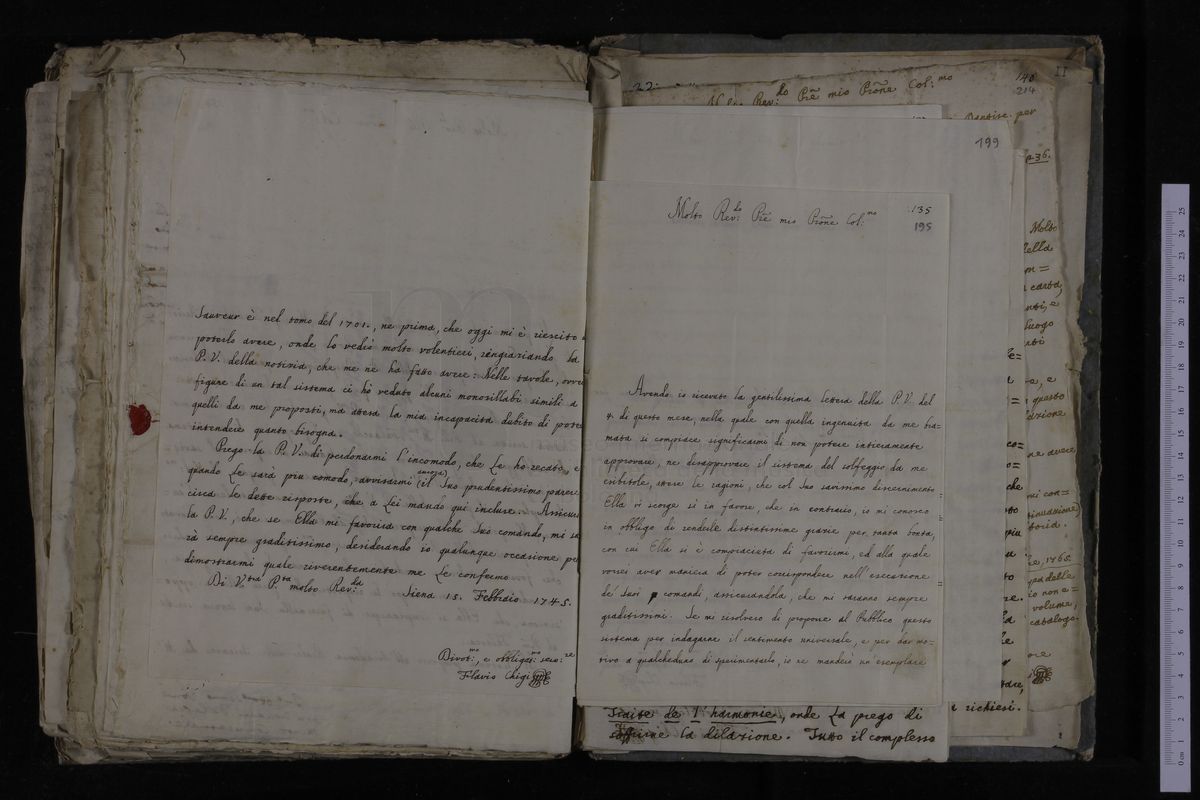 Sauveur è nel tomo del 1701., ne prima, che oggi mi è riescito
poterlo avere, onde lo vedrò molto volentieri, ringraziando la
P. V. della notizia, che me ne ha fatto avere: Nelle tavole, ovve
figure di un tal sistema ci hò veduto alcuni monosillabi simili a
quelli da me proposti, ma attesa la mia incapacità dubito di pote
intendere quanto bisogna.
Prego la P. V. di perdonarmi l'incomodo, che Le hò recato, e
quando Le sarà piu comodo, avvisarmi il Suo prudentissimo parere
circa le dette risposte, che a Lei mando qui incluse. Assicur
la P. V., che se Ella mi favorirà con qualche Suo comando, mi sa
rà sempre graditissimo, desiderando io qualunque occasione pe
dimostrarmi quale riverentemente me Le confermo
Di V.tra P.tà molto Rev.da Siena 15. Febbraio 1745.
Divot.mo, e obbligat.mo servo.re
Flavio Chigi
Molto Rev.do Prẽ mio Prõne Col.mo
135
195
Avendo io ricevuto la gentilissima lettera della P. V. del
4. di questo mese, nella quale con quella ingenuità da me bra=
mata si compiace significarmi di non potere intieramente
approvare, ne disapprovare il sistema del solfeggio da me
esibitole, attese le ragioni, che col Suo savissimo discernimento
Ella vi scorge sì in favore, che in contrario, io mi conosco
in obbligo di renderle distintissime grazie per tanta bontà,
con cui Ella si è compiaciuta di favorirmi, ed alla quale
vorrei aver maniera di poter corrispondere nell'esecuzione
de' Suoi comandi, assicurandola, che mi saranno sempre
graditissimi. Se mi risolverò di proporre al Pubblico questo
sistema per indagarne il sentimento universale, e per dar mo=
tivo a qualcheduno di sperimentarlo, io ne manderò un'esemplare
Traité de l'harmonie, onde La prego di
soffrirne la dilazione. Tutto il complesso
199
Molto Rev.do Prẽ mio Prõne Col.mo
140
214
II
per
p. 36.
Molto
carta,
luogo
questo
avere
1765.
volume,
catalogo.
richiesi.